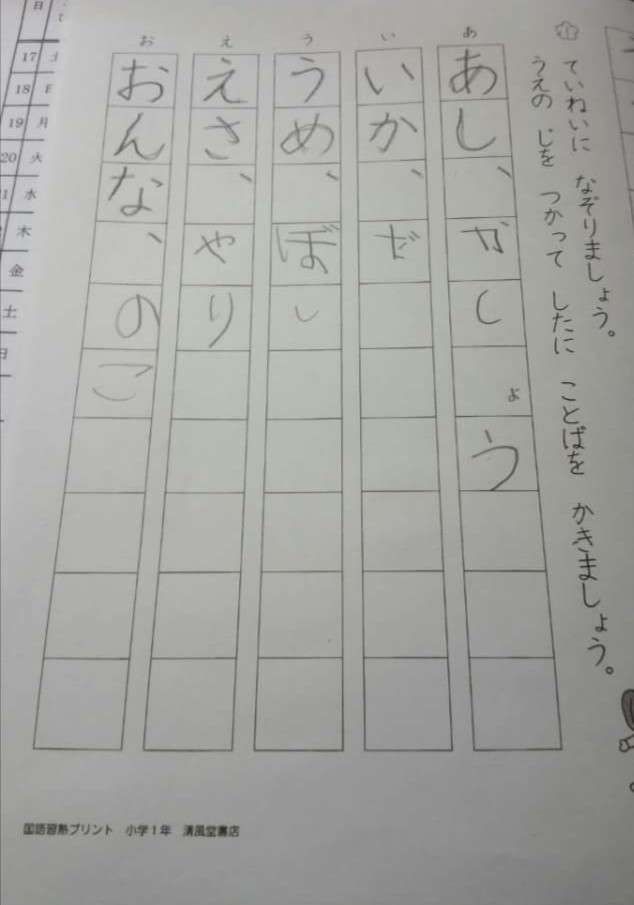 ていねいに なぞりましょう。
うえの じを つかって したに ことばを かきましょう。
あ
あし、がしょう
い
いか、
う
うめ、ぼし
え
えさ、やり
お
おんな、のこ
日
17 土
18 日
19 月
20 火
水
木
金
土
日
国語習熟プリント 小学1年 清風堂書店